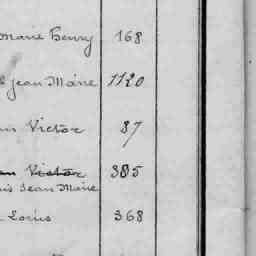 Marie Henry 168
Jean Marie 1120
Victor 87
Victor 385
Jean Marie
Louis 368